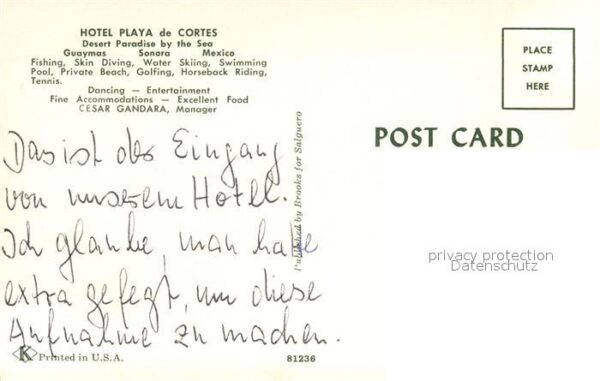 HOTEL PLAYA de CORTES
Desert Paradise by the Sea
Guaymas Sonora Mexico
Fishing, Skin Diving, Water Skiing, Swimming
Pool, Private Beach, Golfing, Horseback Riding,
Tennis.
Dancing — Entertainment
Fine Accommodations — Excellent Food
CESAR GANDARA, Manager
Das ist der Eingang
von unserem Hotel.
Ich glaube, man habe
extra gefegt, um diese
Aufnahme zu machen.
K Printed in U.S.A.
81236
Published by Brooks for Salguero
POST CARD
PLACE
STAMP
HERE
privacy protection
Datenschutz